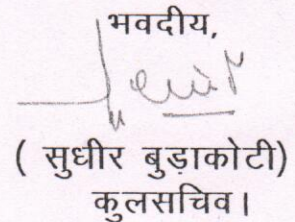 भवदीय,
( सुधीर बुड़ाकोटी)
कुलसचिव।